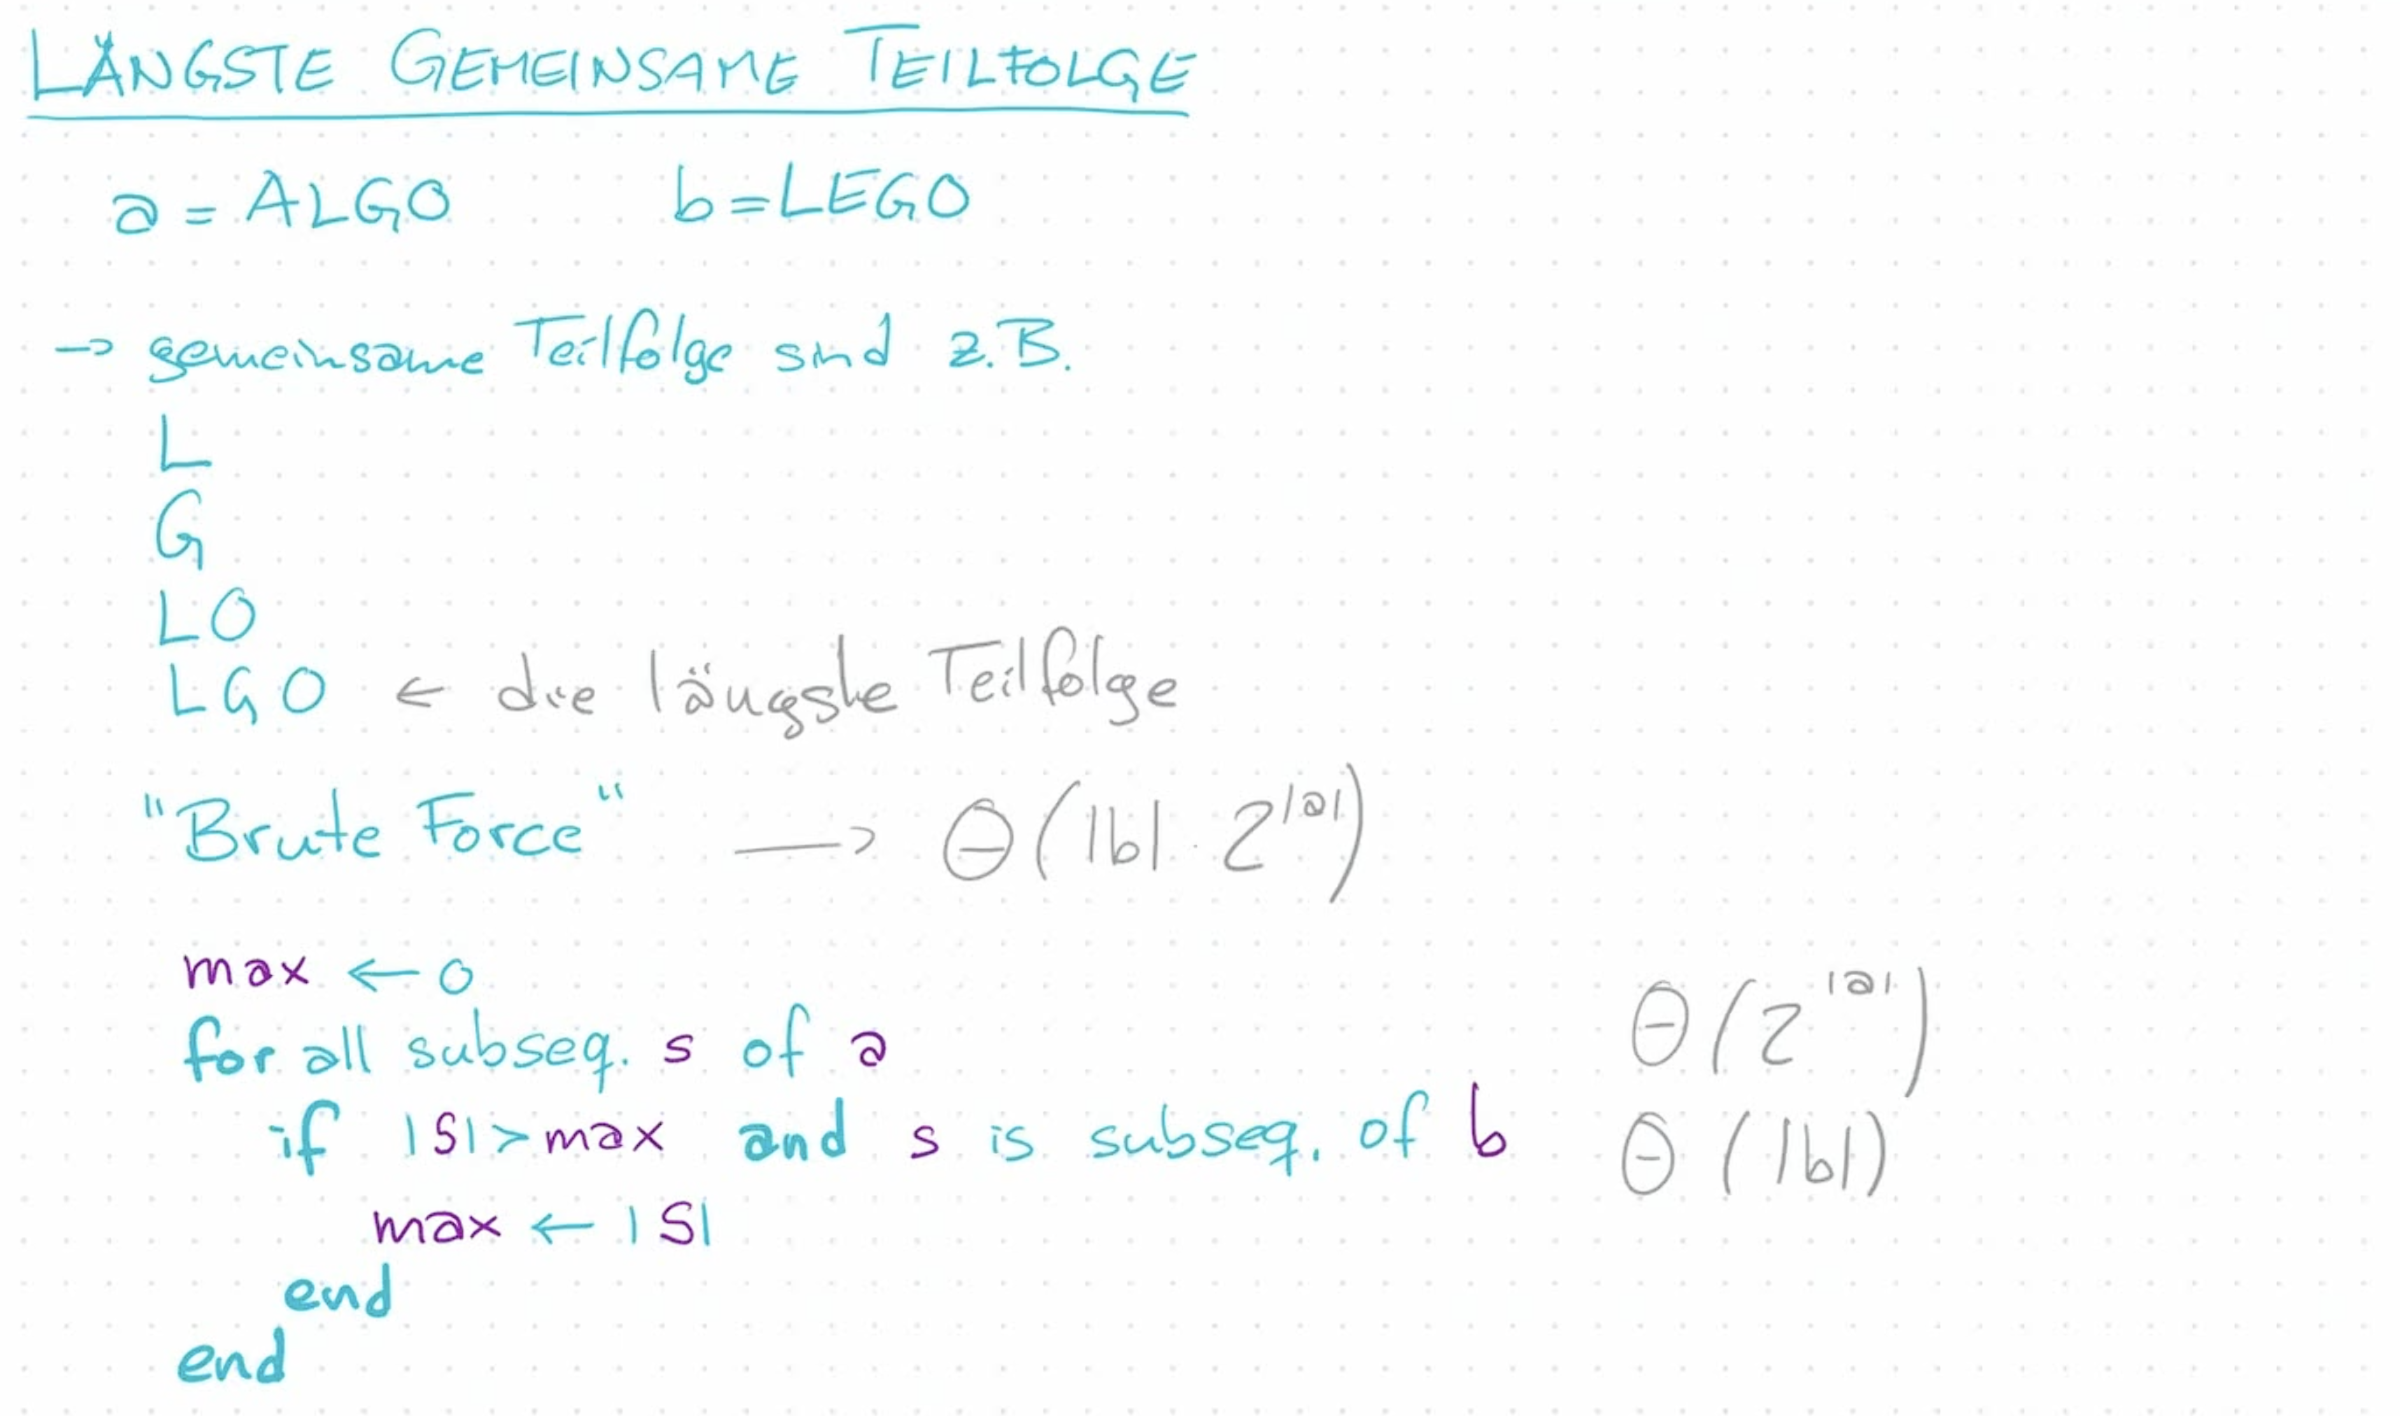 LÄNGSTE GEMEINSAME TEILFOLGE
a = ALGO b = LEGO
→ gemeinsame Teilfolge sind z.B.
L
G
LO
LGO ← die längste Teilfolge
"Brute Force" → Θ(|b| · 2^|a|)
max ← 0
for all subseq. s of a Θ(2^|a|)
if |S| > max and s is subseq. of b Θ(|b|)
max ← |S|
end
end